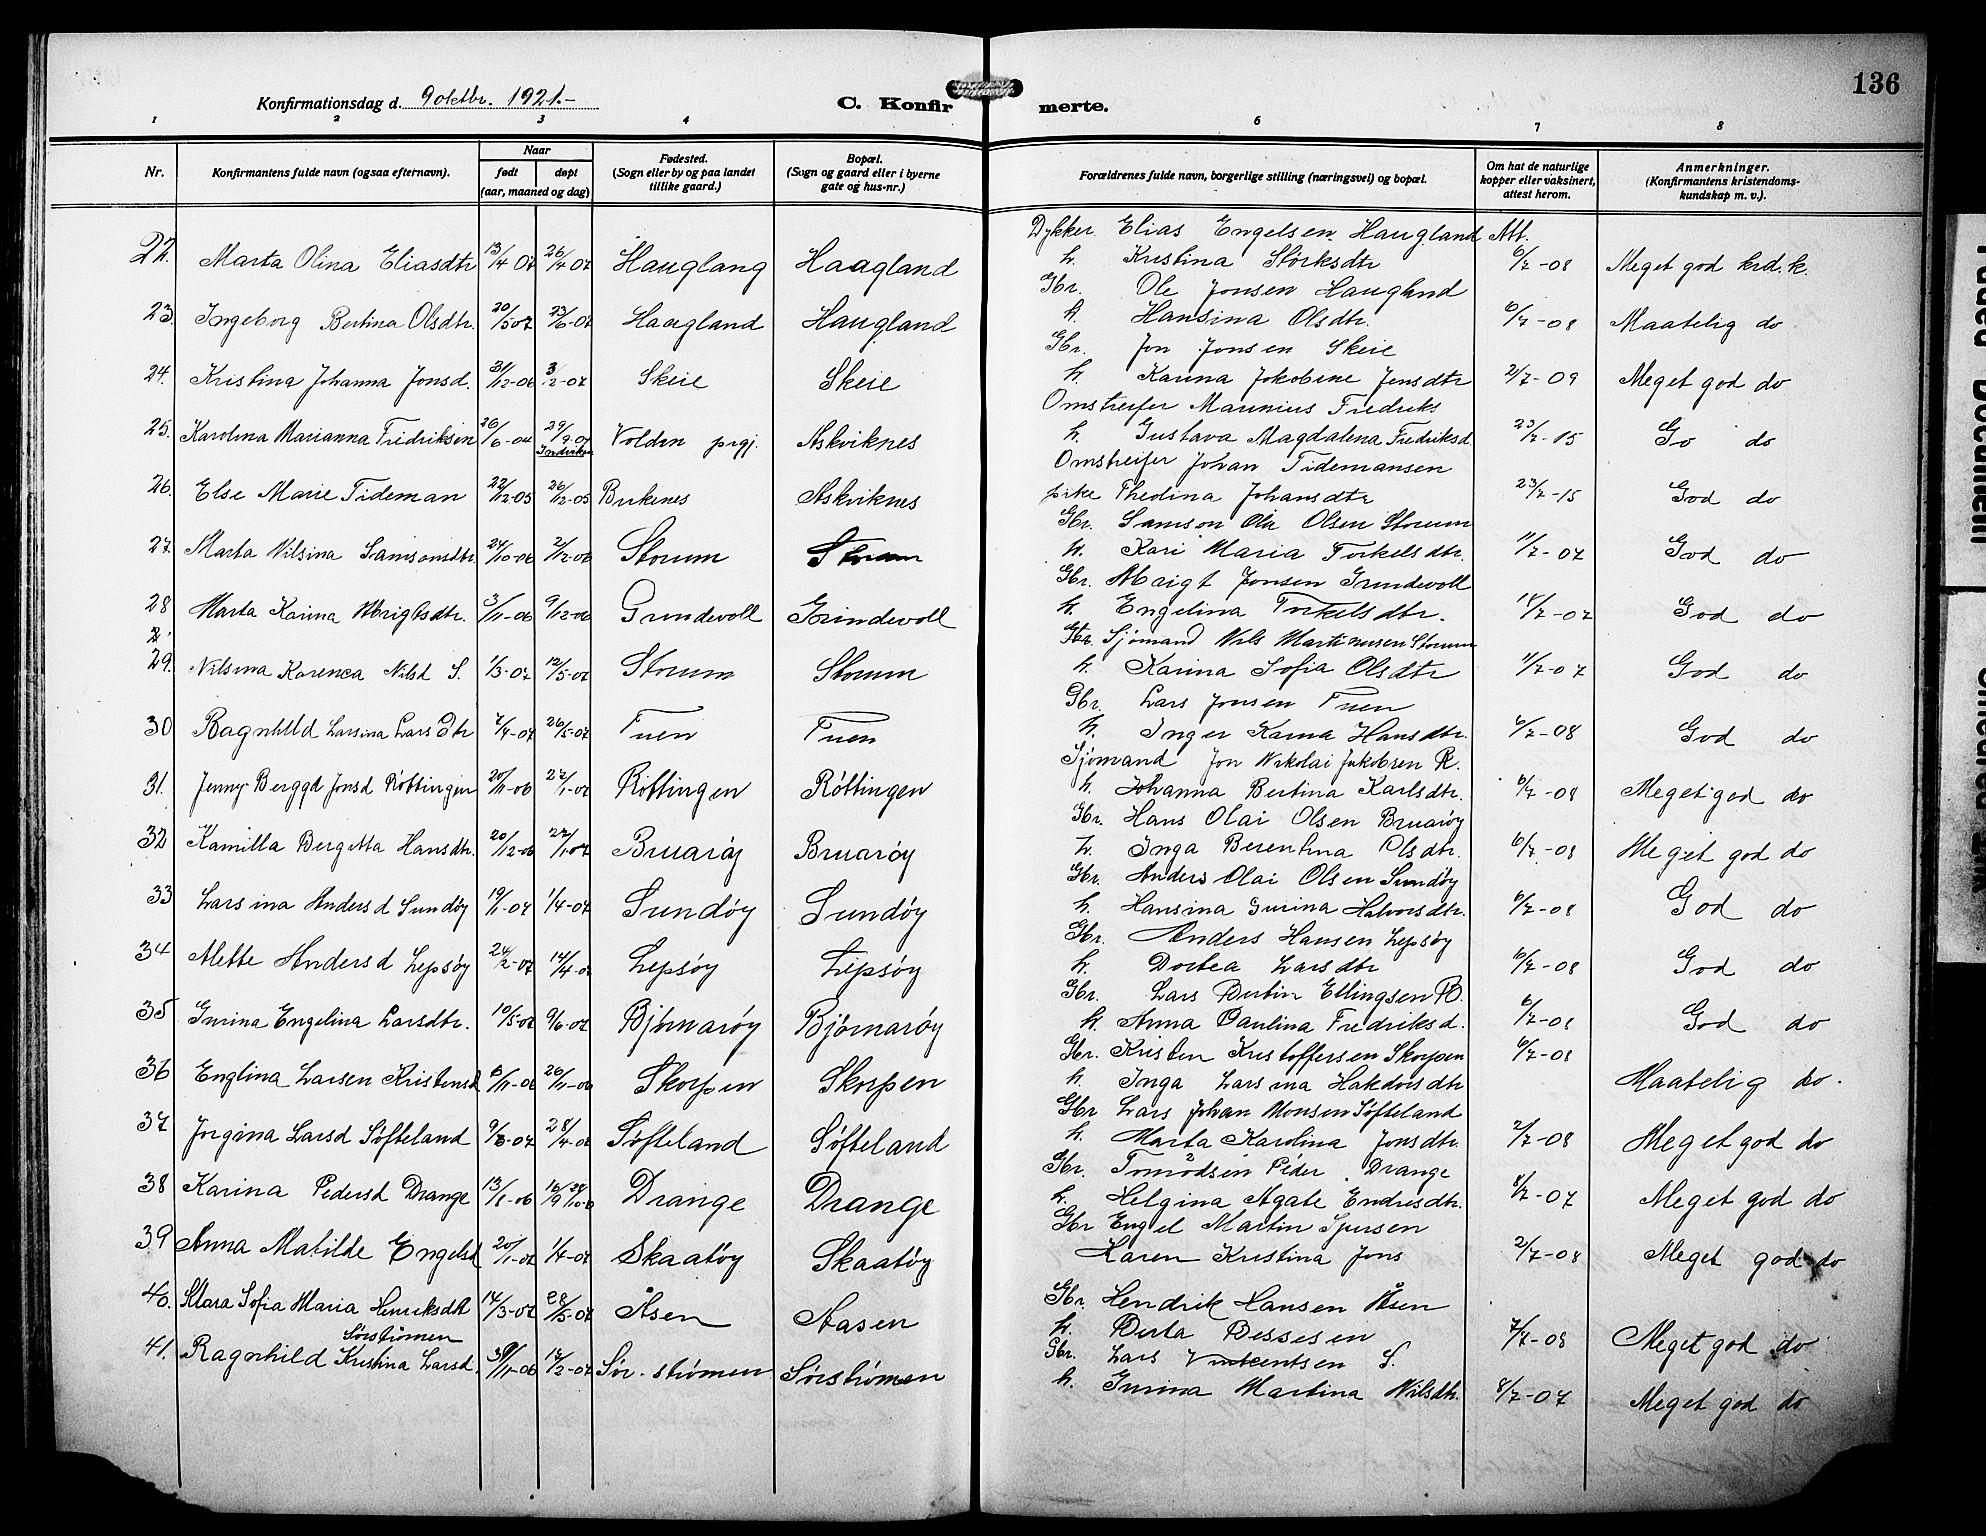 136
Konfirmationsdag d. 9 oktbr. 1921.-
C. Konfirmerte.
1 2 3 4 5 6 7 8
Nr. Konfirmantens fulde navn (ogsaa efternavn). Naar født døpt (aar, maaned og dag) Fødested. (Sogn eller by og paa landet tillike gaard.) Bopæl. (Sogn og gaard eller i byerne gate og hus-nr.) Forældrenes fulde navn, borgerlige stilling (næringsvei) og bopæl. Om hat de naturlige kopper eller vaksinert, attest herom. Anmerkninger. (Konfirmantens kristendomskundskap m. v.).
Dykker Elias Engelsen Haugland Att.
22. Marta Olina Eliasdtr 13/4 07 26/4-07 Hauglang Haagland h. Kristina Størksdtr 6/7-08 Meget god krd. k.
Gbr. Ole Jonsen Haugland
23. Ingeborg Bertina Olsdtr. 20/5 07 23/6-07 Haagland Haugland h. Hansina Olsdtr. 6/7-08 Maatelig do
Gbr. Jon Jonsen Skeie
24. Kristina Johanna Jonsd. 31/12-06 3/2-07 Skeie Skeie h. Karina Jokobine Jensdtr 2/7-09 Meget god do
Omstreifer Maurius Fredriks
25. Karolina Marianna Fridriksen 26/6-04 29/9-04 Volden prgj. Askviknes h. Gustava Magdalena Fredriksd. 23/7-15 Go do
Omstreifer Johan Tidemansen
26. Else Marie Tideman 22/12-05 26/12-05 Birkenes Askviknes pike Thedina Johansdtr 23/7-15 God do
Gbr. Samson Ola Olsen Storum
27. Marta Nilsina Samsonsdtr. 24/10-06 2/12-06 Storum Storum h. Kari Maria Torkelsdtr. 11/7-07 God do
Gbr. Abrigt Jonsen Grindevoll
28 Marta Karina Abrigtsdtr. 3/11-06 9/12-06 Grindevoll Grindevoll h. Engelina Torkelsdtr. 18/7-07 God do
Gbr. Sjømand Nils Martinusen Storum
29. Nilsina Karenea Nilsd S. 1/3-07 12/5-07 Storum Storum h. Karina Sofia Olsdtr 11/7-07 God do
Gbr. Lars Jonsen Tuen
30 Ragnhild Larsina Larsdtr 7/4-07 26/5-07 Tuen Tuen h. Inger Karina Hansdtr. 6/7-08 God do
Sjømand Jon Nikolai Jakobsen R.
31. Jenny Berggd Jonsd Røttingen 20/11-06 27/1-07 Røttingen Røttingen h. Johanna Bertina Karlsdtr. 6/7-08 Meget god do
Gbr. Hans Olai Olsen Bruarøy
32 Kamilla Bergitta Hansdtr. 20/12-06 27/1-07 Bruarøy Bruarøy h. Inga Berentina Olsdtr. 6/7-08 Meget god do
Gbr. Anders Olai Olsen Sundøy
33 Larsina Andersd Sundøy 19/1-07 1/4-07 Sundøy Sundøy h. Hansina Gurina Halvorsdtr. 6/7-08 God do
Gbr. Anders Hansen Lepsøy
34 Mette Andersd Lepsøy 24/2-07 14/4-0 Lepsøy Lepsøy h. Dortea Larsdtr 6/7-08 God do
Gbr. Lars Bertin Ellingsen B.
35 Gurina Engelina Larsdtr. 10/5-07 9/6-07 Bjørnarøy Bjørnarøy h. Anna Paulina Fredriksd. 6/7-08 God do
Gbr. Kristen Kristoffersen Skorpen 6/7-08
36 Englina Larsen Kristensd 6/11-06 26/11-06 Skorpen Skorpen h. Inga Larsina Hakdorsdtr Maatelig do.
Gbr Lars Johan Monsen Søfteland
37 Jorgina Larsd Søfteland 9/3-07 28/4-07 Søfteland Søfteland h. Marta Karolina Jonsdtr. 2/7-08 Meget god do
Gbr. Tomødsen Peder Drange
38 Karina Pedersd Drange 13/8-06 16/9 Drange Drange h. Helgina Agate Endresdtr. 8/7-07 Meget god do
Gbr Engel Martin Iversen
39 Anna Matilde Engelsd 20/1-07 1/4-07 Skaatøy Skaatøy Karen Kristina Jons 2/7-08 Meget god do
Gbr. Hendrik Hansen Åsen
40. Klara Sofia Maria Henriksdtr 14/3-07 28/5-07 Åsen Aasen h. Berta Bessesen 7/7-08 Meget god do
Sørstrømen
Gbr. Lars Vinkentsen S.
41. Ragnhild Kristina Larsd. 30/11-06 17/2-07 Sør-strømen Sørstrømen h. Gurina Martina Nilsdtr. 8/7-07 Meget god do